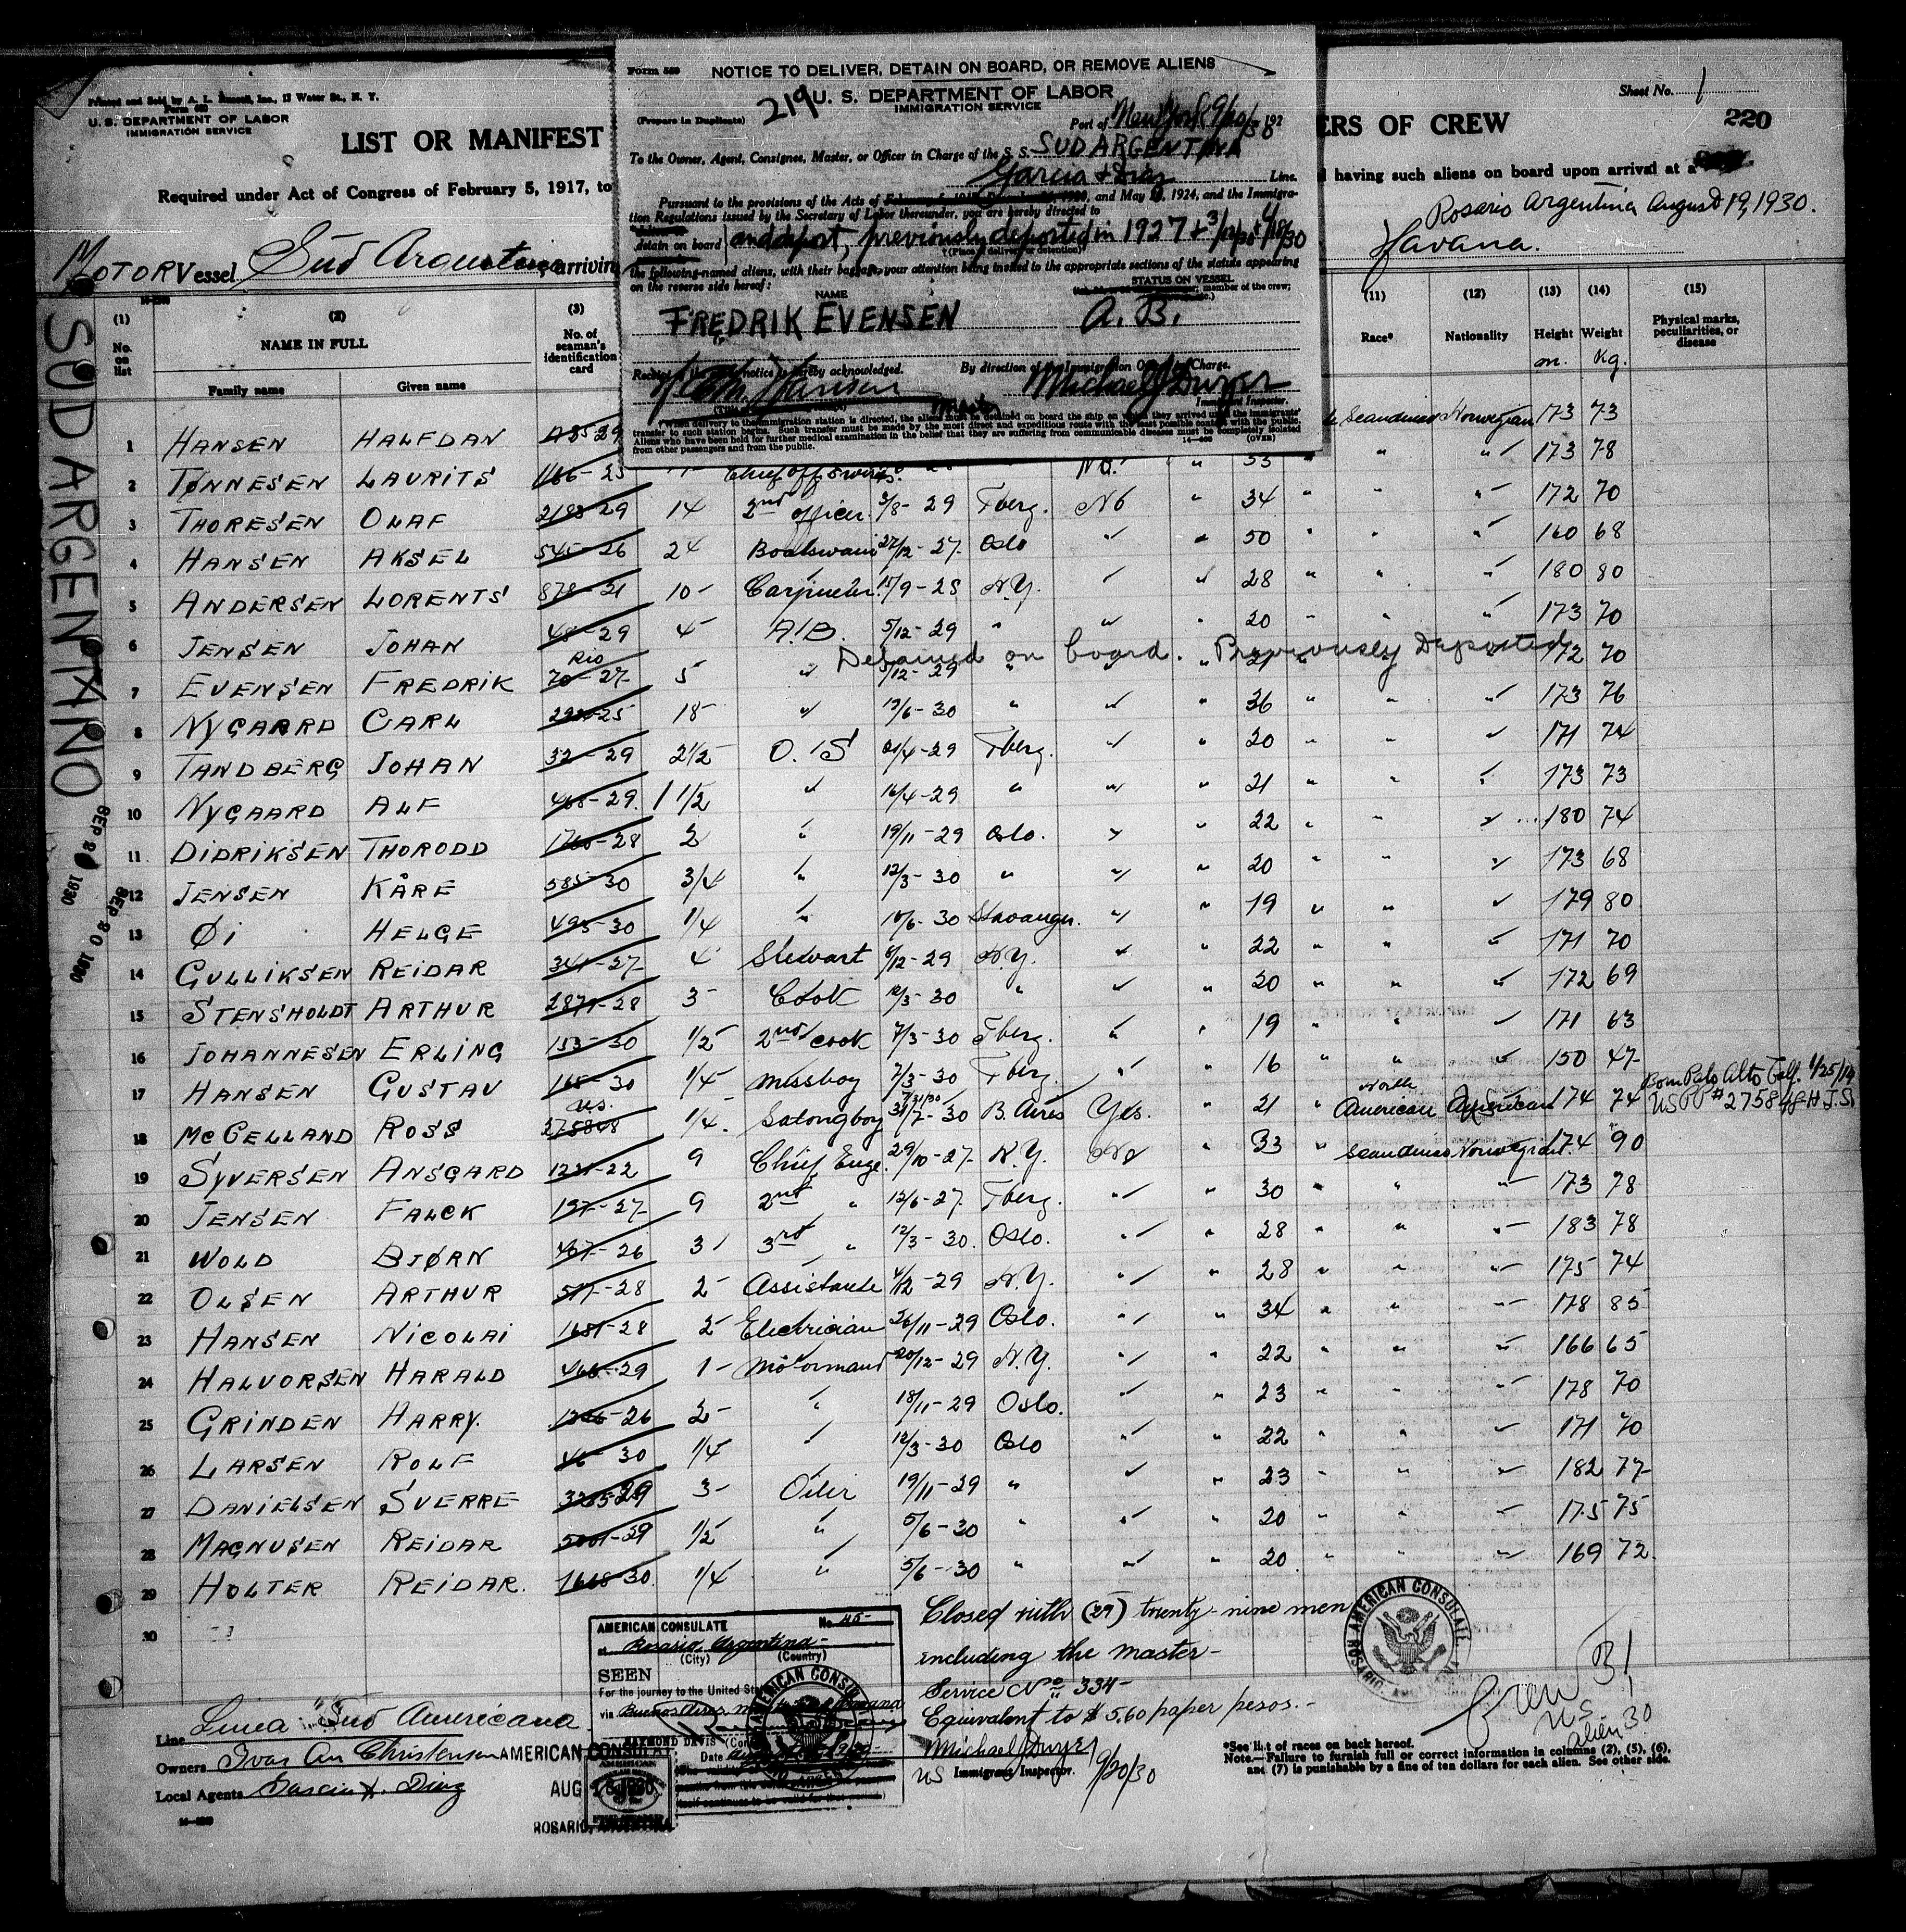 Printed and Sold by A. L. Russell, Inc., 17 Water St., N. Y.
U. S. DEPARTMENT OF LABOR
IMMIGRATION SERVICE
LIST OR MANIFEST
ERS OF CREW
Sheet No. 1
220
Required under Act of Congress of February 5, 1917, to
having such aliens on board upon arrival at a
Rosario Argentina August 19, 1930.
Havana.
MOTOR Vessel Sud Argentino arriving
Form 550 NOTICE TO DELIVER, DETAIN ON BOARD, OR REMOVE ALIENS
219
U. S. DEPARTMENT OF LABOR
IMMIGRATION SERVICE
(Prepare in Duplicate)
Port of New York 9/20/30 192
To the Owner, Agent, Consignee, Master, or Officer in Charge of the S. S. SUD ARGENTINA
Garcia + Diaz Line.
Pursuant to the provisions of the Acts of and May 1924, and the Immigra-
tion Regulations issued by the Secretary of Labor thereunder, you are hereby directed to
detain on board and deport, previously deported in 1927 + 3/12/30 + 4/18/30
(Place of delivery or detention)
the following-named aliens, with their baggage, your attention being invited to the appropriate sections of the statute appearing
on the reverse side hereof:
STATUS ON VESSEL
member of the crew;
NAME
FREDRIK EVENSEN A. B.
Receipt of this notice is hereby acknowledged. By direction of the Immigration Officer in Charge.
Hansen Michael J Dwyer
Master Immigrant Inspector.
When delivery to the immigration station is directed, the aliens must be detained on board the ship on which they arrived until the immigrants'
transfer to such station begins. Such transfer must be made by the most direct and expeditious route with the least possible contact with the public.
Aliens who have been held for further medical examination in the belief that they are suffering from communicable diseases must be completely isolated
from other passengers and from the public.
(OVER)
SUD ARGENTINO
SEP 20 1930
SEP 20 1930
(1) (2) (3) (11) (12) (13) (14) (15)
No. on list NAME IN FULL No. of seaman's identification card Race* Nationality Height Weight Physical marks, peculiarities, or disease
Family name Given name cm. Kg.
1 HANSEN HALFDAN Scandinav Norwegian 173 73
2 TØNNESEN LAURITS 1166-25 Chief off No. " 33 " " " 173 78
3 THORESEN OLAF 2183-29 14 2nd officer 3/8-29 Tberg. No " 34 " " " 172 70
4 HANSEN AKSEL 545-26 24 Boatswain 27/12-27 Oslo " " 50 " " " 160 68
5 ANDERSEN LORENTS 878-21 10 Carpenter 15/9-28 N.Y. " " 28 " " " 180 80
6 JENSEN JOHAN 48-29 4 A.B. 5/12-29 " " " 20 " " " 173 70
Detained on board. Previously Deported
7 EVENSEN FREDRIK Rio 70-27 5 " /12-29 " " 21 " " " 172 70
8 NYGAARD CARL 18 " 13/6-30 " " " 26 " " " 173 76
9 TANDBERG JOHAN 32-29 2 1/2 O.S /4-29 Tberg. " " 20 " " " 171 74
10 NYGAARD ALF 468-29 1 1/2 " 16/4-29 " " " 21 " " " 173 73
11 DIDRIKSEN THORODD 1765-28 2 " 19/11-29 Oslo. " " 22 " " " 180 74
12 JENSEN KÅRE 585-30 3/4 " 12/3-30 " " " 20 " " " 173 68
13 ØI HELGE 495-30 1/4 " 10/6-30 Stavanger. " " 19 " " " 179 80
14 GULLIKSEN REIDAR 341-27 4 Stewart 6/12-29 N.Y. " " 22 " " " 171 70
15 STENSHOLDT ARTHUR 2871-28 3 Cook 12/3-30 " " " 20 " " " 172 69
16 JOHANNESEN ERLING 153-30 1/2 2nd cook 7/3-30 Tberg. " " 19 " " " 171 63
17 HANSEN GUSTAV 165-30 1/4 Messboy 7/3-30 Tberg " " 16 " " " 150 47
18 McCELLAND ROSS U.S. 275848 1/4 Salongboy 31/7-30 B. Aires Yes. " 21 " North American American 174 74 Born Palo Alto Calf. 1/25/ US PP # 275848 H.J.S.
19 SYVERSEN ANSGARD 1221-22 9 Chief Enge. 29/10-27 N.Y. No " 33 " Scandinav Norwegian 174 90
20 JENSEN FALCK 197-27 9 2nd " 12/6-27 Tberg. " " 30 " " " 173 78
21 WOLD BJØRN 467-26 3 3rd " 12/3-30 Oslo. " " 28 " " " 183 78
22 OLSEN ARTHUR 511-28 2 Assistante 4/12-29 N.Y. " " 28 " " " 175 74
23 HANSEN NICOLAI 1681-28 2 Electrician 26/11-29 Oslo. " " 34 " " " 178 85
24 HALVORSEN HARALD 466-29 1 Motormand 20/12-29 N.Y. " " 22 " " " 166 65
25 GRINDEN HARRY. 1266-26 2 " 18/11-29 Oslo. " " 23 " " " 178 70
26 LARSEN ROLF 46-30 1/4 " 12/3-30 Oslo " " 22 " " " 171 70
27 DANIELSEN SVERRE 3255-29 3 Oiler 19/11-29 " " " 23 " " " 182 77
28 MAGNUSEN REIDAR 5001-29 1/2 " 5/6-30 " " " 20 " " " 175 75
29 HOLTER REIDAR. 1668-30 1/4 " 5/6-30 " " " 20 " " " 169 72
30
Closed with (29) twenty-nine men
including the master-
Service No 334-
Equivalent to $ 5.60 paper pesos.-
Michael J Dwyer
US Immigrant Inspector. 9/20/30
AMERICAN CONSULATE No. 45-
at Rosario, Argentina-
(City) (Country)
SEEN
For the journey to the United States
via Buenos Aires
RAYMOND DAVIS
Date
AMERICAN CONSULATE
ROSARIO, ARGENTINA
AMERICAN CONSULATE
AUG 1930
ROSARIO, ARGENTINA
Line Linea Sud Americana
Owners Ivar An Christensen
Local Agents Garcia & Diaz
US
alien 30
*See list of races on back hereof.
Note.—Failure to furnish full or correct information in columns (2), (5), (6),
and (7) is punishable by a fine of ten dollars for each alien. See other side.